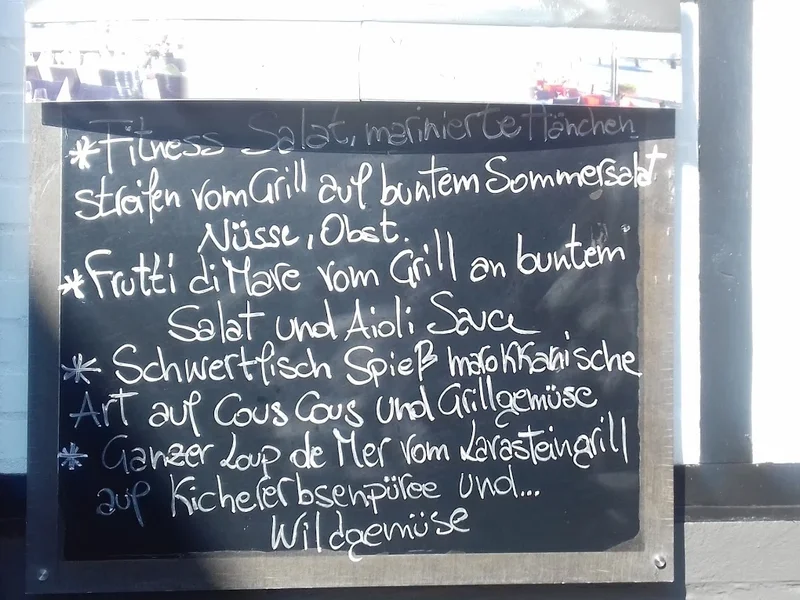 * Fitness Salat, marinierte Hänchen
streifen vom Grill auf buntem Sommersalat
Nüsse, Obst.
* Frutti di Mare vom Grill an buntem
Salat und Aioli Sauce
* Schwertfisch Spieß marokkanische
Art auf Cous Cous und Grillgemüse
* Ganzer Loup de Mer vom Lavasteingrill
auf Kichererbsenpüree und...
Wildgemüse